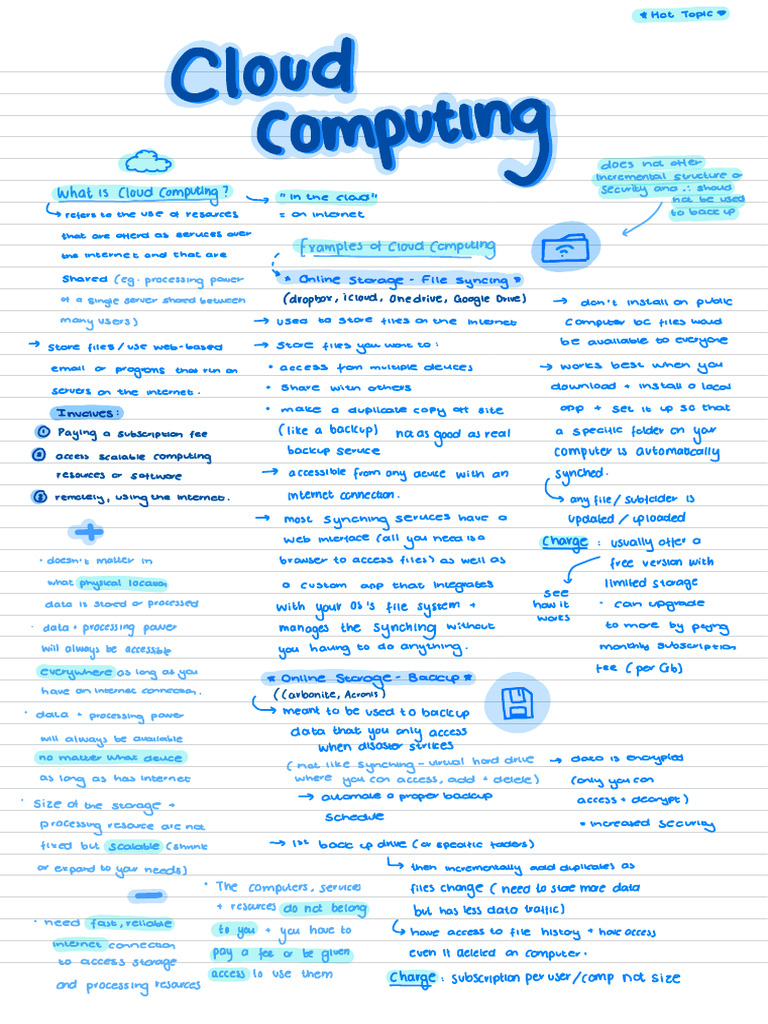 * Hot Topic ♥
Cloud
Computing
What is Cloud Computing?
→ refers to the use of resources
that are offered as services over
the internet and that are
shared (eg. processing power
of a single server shared between
many users)
→ store files/use web-based
email or programs that run on
servers on the internet.
Involves:
① Paying a subscription fee
② access scalable computing
resources or software
③ remotely, using the internet.
+
• doesn't matter in
what physical location
data is stored or processed
• data + processing power
will always be accessible
everywhere as long as you
have an internet connection.
• data + processing power
will always be available
no matter what device
as long as has internet
• Size of the storage +
processing resource are not
fixed but scalable (shrink
or expand to your needs)
-
• need fast, reliable
internet connection
to access storage
and processing resources
• The computers, services
+ resources do not belong
to you + you have to
pay a fee or be given
access to use them
→ "in the cloud"
= on internet
Examples of Cloud Computing
* Online Storage - File Syncing *
(dropbox, icloud, Onedrive, Google Drive)
→ used to store files on the internet
→ store files you want to:
• access from multiple devices
• share with others
• make a duplicate copy off site
(like a backup) not as good as real
backup service
→ accessible from any device with an
internet connection.
→ most synching services have a
web interface (all you need is a
browser to access files) as well as
a custom app that integrates
with your OS's file system +
manages the synching without
you having to do anything.
does not offer
incremental structure or
security and ∴ should
not be used
to back up
→ don't install on public
computer bc files would
be available to everyone
→ works best when you
download + install a local
app + set it up so that
a specific folder on your
computer is automatically
synched.
→ any file/subfolder is
updated/uploaded
Charge: usually offer a
free version with
limited storage
see
how it
works
• can upgrade
to more by paying
monthly subscription
fee (per Gb)
* Online Storage - Backup *
(Carbonite, Acronis)
→ meant to be used to backup
data that you only access
when disaster strikes
(not like synching - virtual hard drive
where you can access, add + delete)
→ automate a proper backup
schedule
→ data is encrypted
(only you can
access + decrypt)
= increased security
→ 1st back up drive (or specific folders)
→ then incrementally add duplicates as
files change (need to store more data
but has less data traffic)
→ have access to file history + have access
even if deleted on computer.
Charge: subscription per user/comp not size